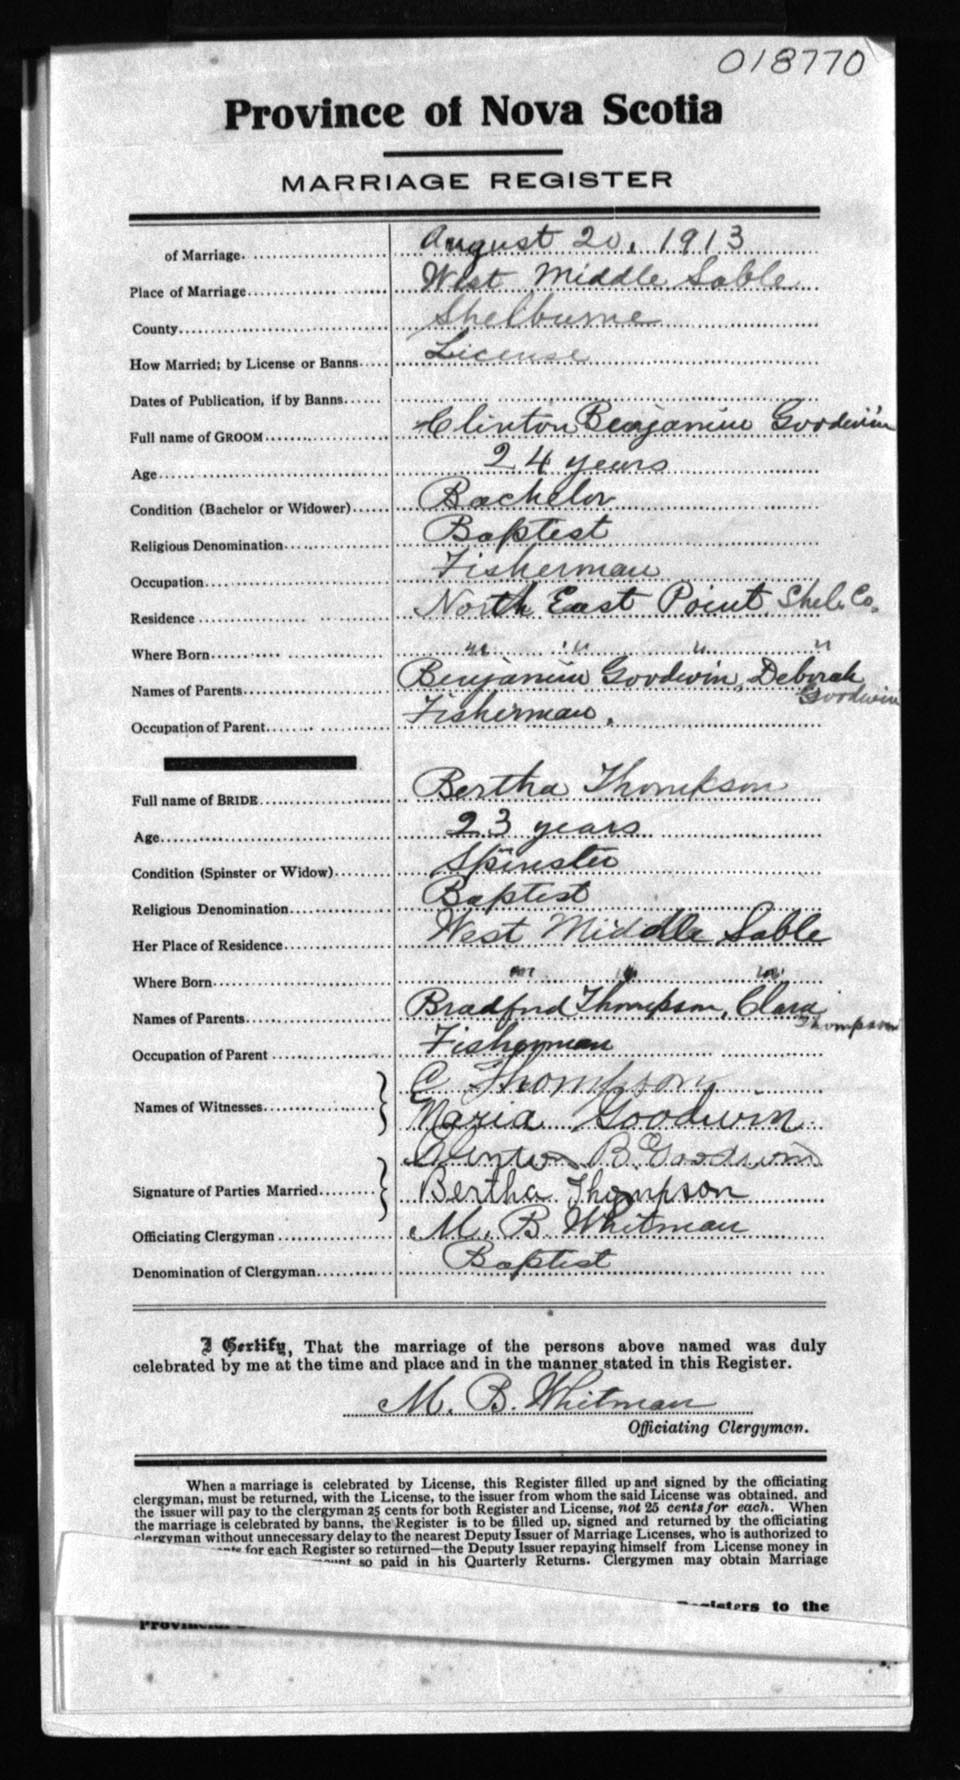 018770
Province of Nova Scotia
MARRIAGE REGISTER
of Marriage. August 20, 1913
Place of Marriage West Middle Sable
County Shelburne
How Married; by License or Banns License
Dates of Publication, if by Banns
Full name of GROOM Clinton Benjamin Goodwin
Age 24 years
Condition (Bachelor or Widower) Bachelor
Religious Denomination Baptest
Occupation Fisherman
Residence North East Point Shel. Co.
Where Born " " " "
Names of Parents Benjamin Goodwin, Deborah
Goodwin
Occupation of Parent Fisherman.
Full name of BRIDE Bertha Thompson
Age 23 years
Condition (Spinster or Widow) Spinster
Religious Denomination Baptist
Her Place of Residence West Middle Sable
Where Born " " "
Names of Parents Bradford Thompson, Clara
Thompson
Occupation of Parent Fisherman
C Thompson
Names of Witnesses
Maria Goodwin
Clinton B Goodwin
Signature of Parties Married Bertha Thompson
Officiating Clergyman M. B. Whitman
Denomination of Clergyman Baptist
I Certify, That the marriage of the persons above named was duly
celebrated by me at the time and place and in the manner stated in this Register.
M. B. Whitman
Officiating Clergyman.
When a marriage is celebrated by License, this Register filled up and signed by the officiating
clergyman, must be returned, with the License, to the issuer from whom the said License was obtained, and
the issuer will pay to the clergyman 25 cents for both Register and License, not 25 cents for each. When
the marriage is celebrated by banns, the Register is to be filled up, signed and returned by the officiating
clergyman without unnecessary delay to the nearest Deputy Issuer of Marriage Licenses, who is authorized to
for each Register so returned—the Deputy Issuer repaying himself from License money in
so paid in his Quarterly Returns. Clergymen may obtain Marriage
Registers to the